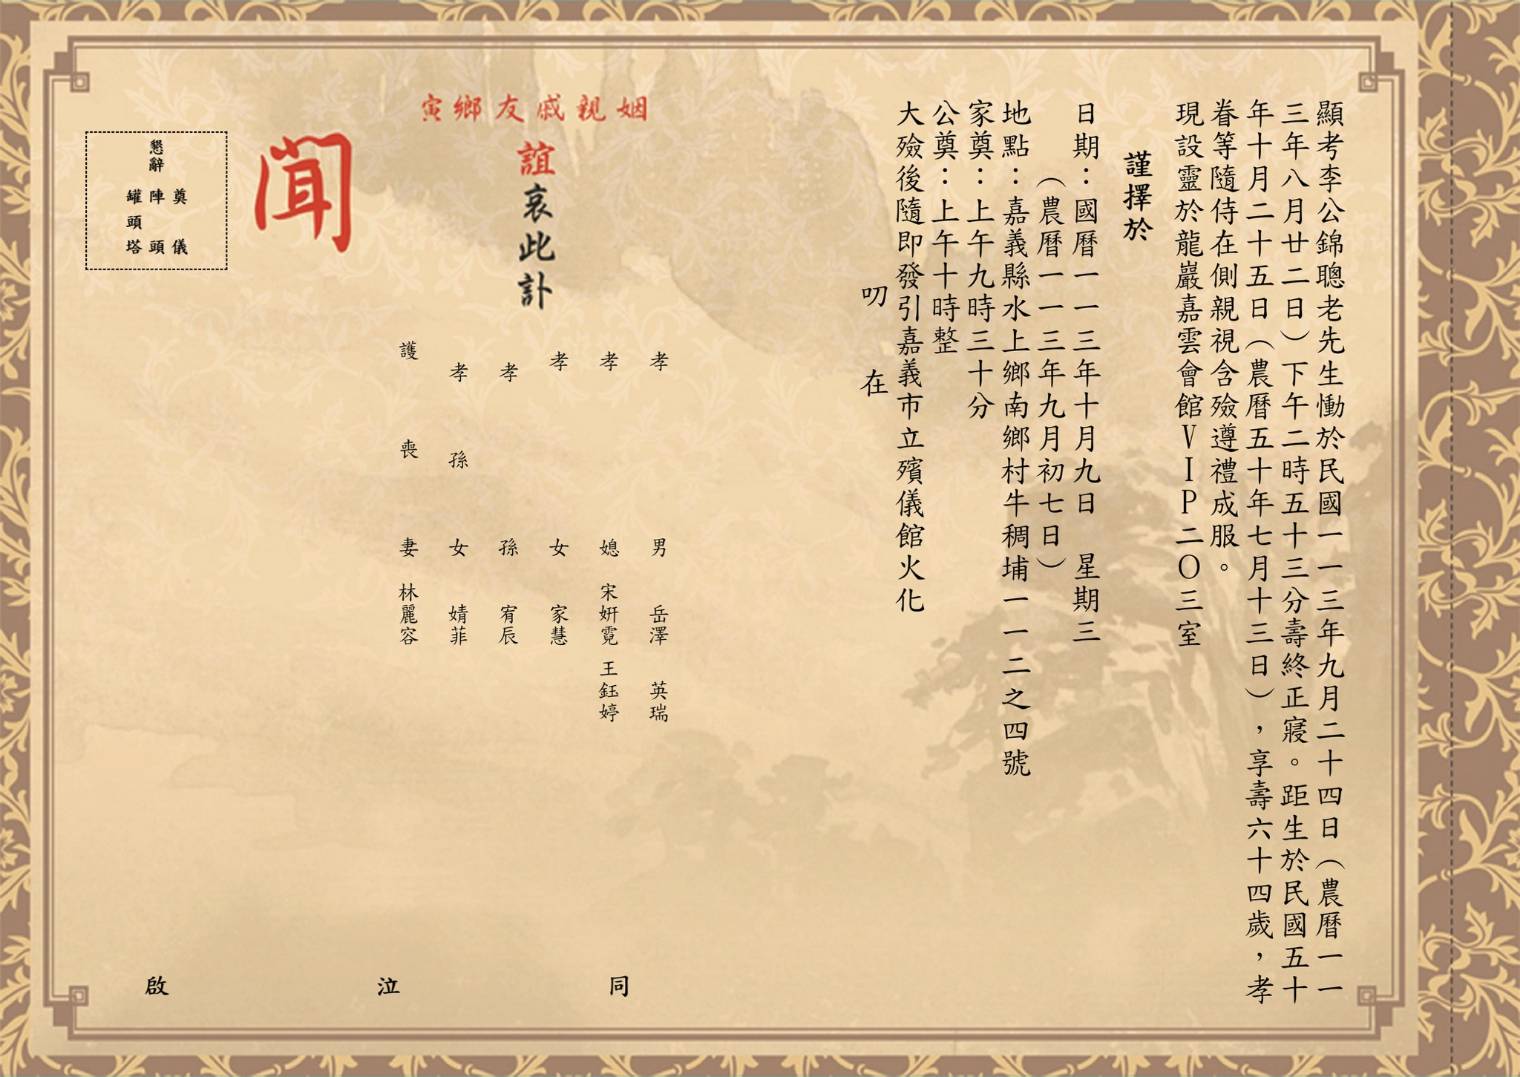 顯考李公錦聰老先生慟於民國一一三年九月二十四日（農曆一一
三年八月廿二日）下午二時五十三分壽終正寢。距生於民國五十
年十月二十五日（農曆五十年七月十三日），享壽六十四歲，孝
眷等隨侍在側親視含殮遵禮成服。
現設靈於龍巖嘉雲會館ＶＩＰ二Ｏ三室
謹擇於
日期：國曆一一三年十月九日　星期三
（農曆一一三年九月初七日）
地點：嘉義縣水上鄉南鄉村牛稠埔一一二之四號
家奠：上午九時三十分
公奠：上午十時整
大殮後隨即發引嘉義市立殯儀館火化
叨在
姻親戚友鄉寅
誼哀此訃
聞
孝男　岳澤　英瑞
孝媳　宋姸霓　王鈺婷
孝女　家慧
孝孫　宥辰
孝孫女　婧菲
護喪妻　林麗容
同泣啟
懇辭
奠儀
陣頭
罐頭塔